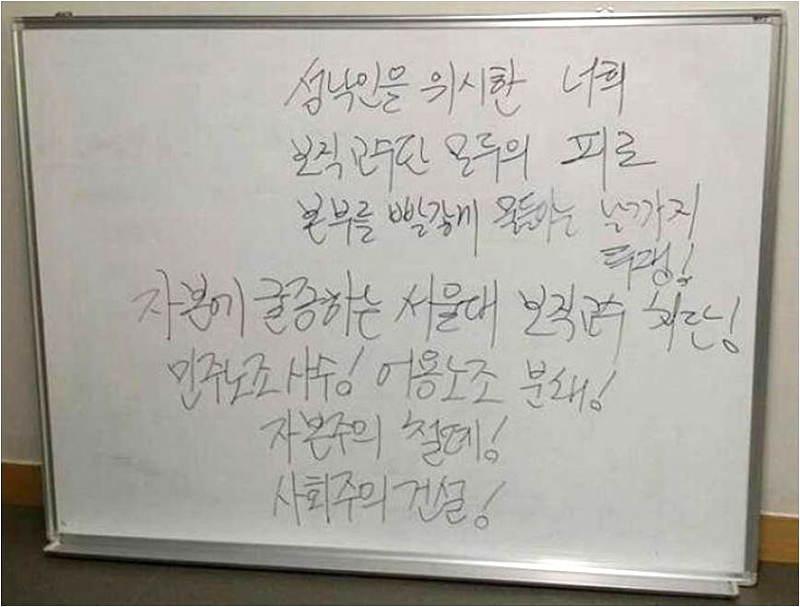 성낙인을 위시한 너희
보직교수단 모두의 피로
본부를 빨갛게 물들이는 날까지
투쟁!
자본에 굴종하는 서울대 보직교수 처단!
민주노조사수! 어용노조 분쇄!
자본주의 철폐!
사회주의건설!